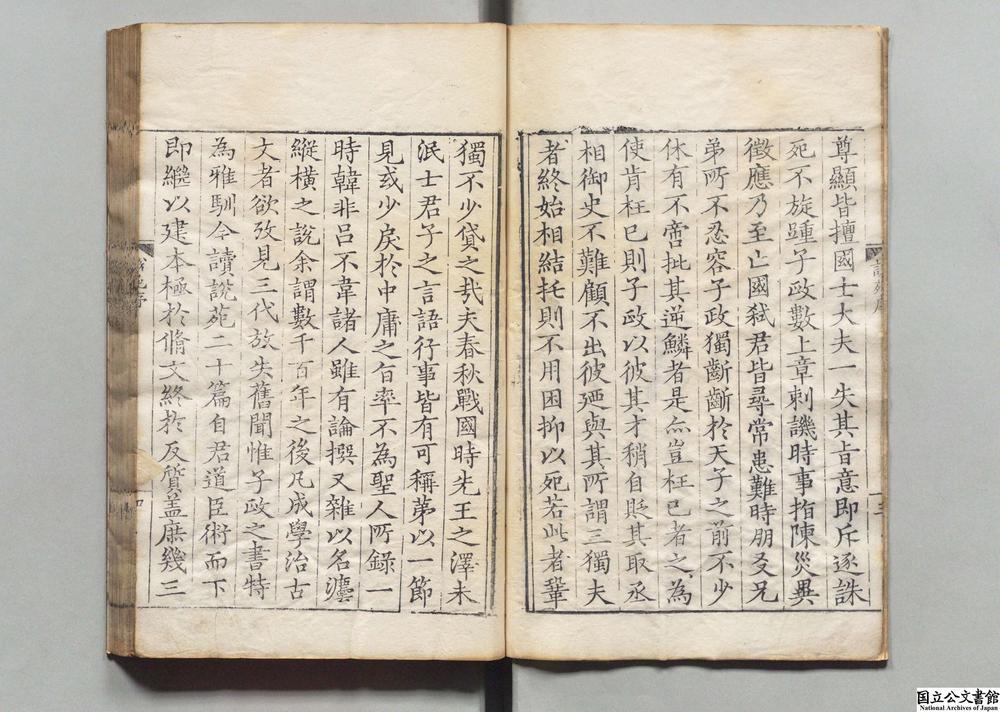 尊顯皆擅國士大夫一失其旨意即斥逐誅
死不旋踵子政數上章刺譏時事指陳災異
徵應乃至亡國弒君皆尋常患難時朋友兄
弟所不忍容子政獨齗齗於天子之前不少
休有不啻批其逆鱗者是亦豈枉已者之為
使肯枉已則子政以彼其才稍自貶其取丞
相御史不難顧不出彼廼與其所謂三獨夫
者終始相結托則不用困抑以死若此者鞏
獨不少貸之㦲夫春秋戰國時先王之澤未
泯士君子之言語行事皆有可稱苐以一節
見或少戾於中庸之旨率不為聖人所錄一
時韓非呂不韋諸人雖有論撰又雜以名灋
縱橫之說余謂數千百年之後凡成學治古
文者欲攷見三代放失舊聞惟子政之書特
為雅馴今讀說苑二十篇自君道臣術而下
即繼以建本極於脩文終於反質盖庶幾三
國立公文書館
National Archives of Japan